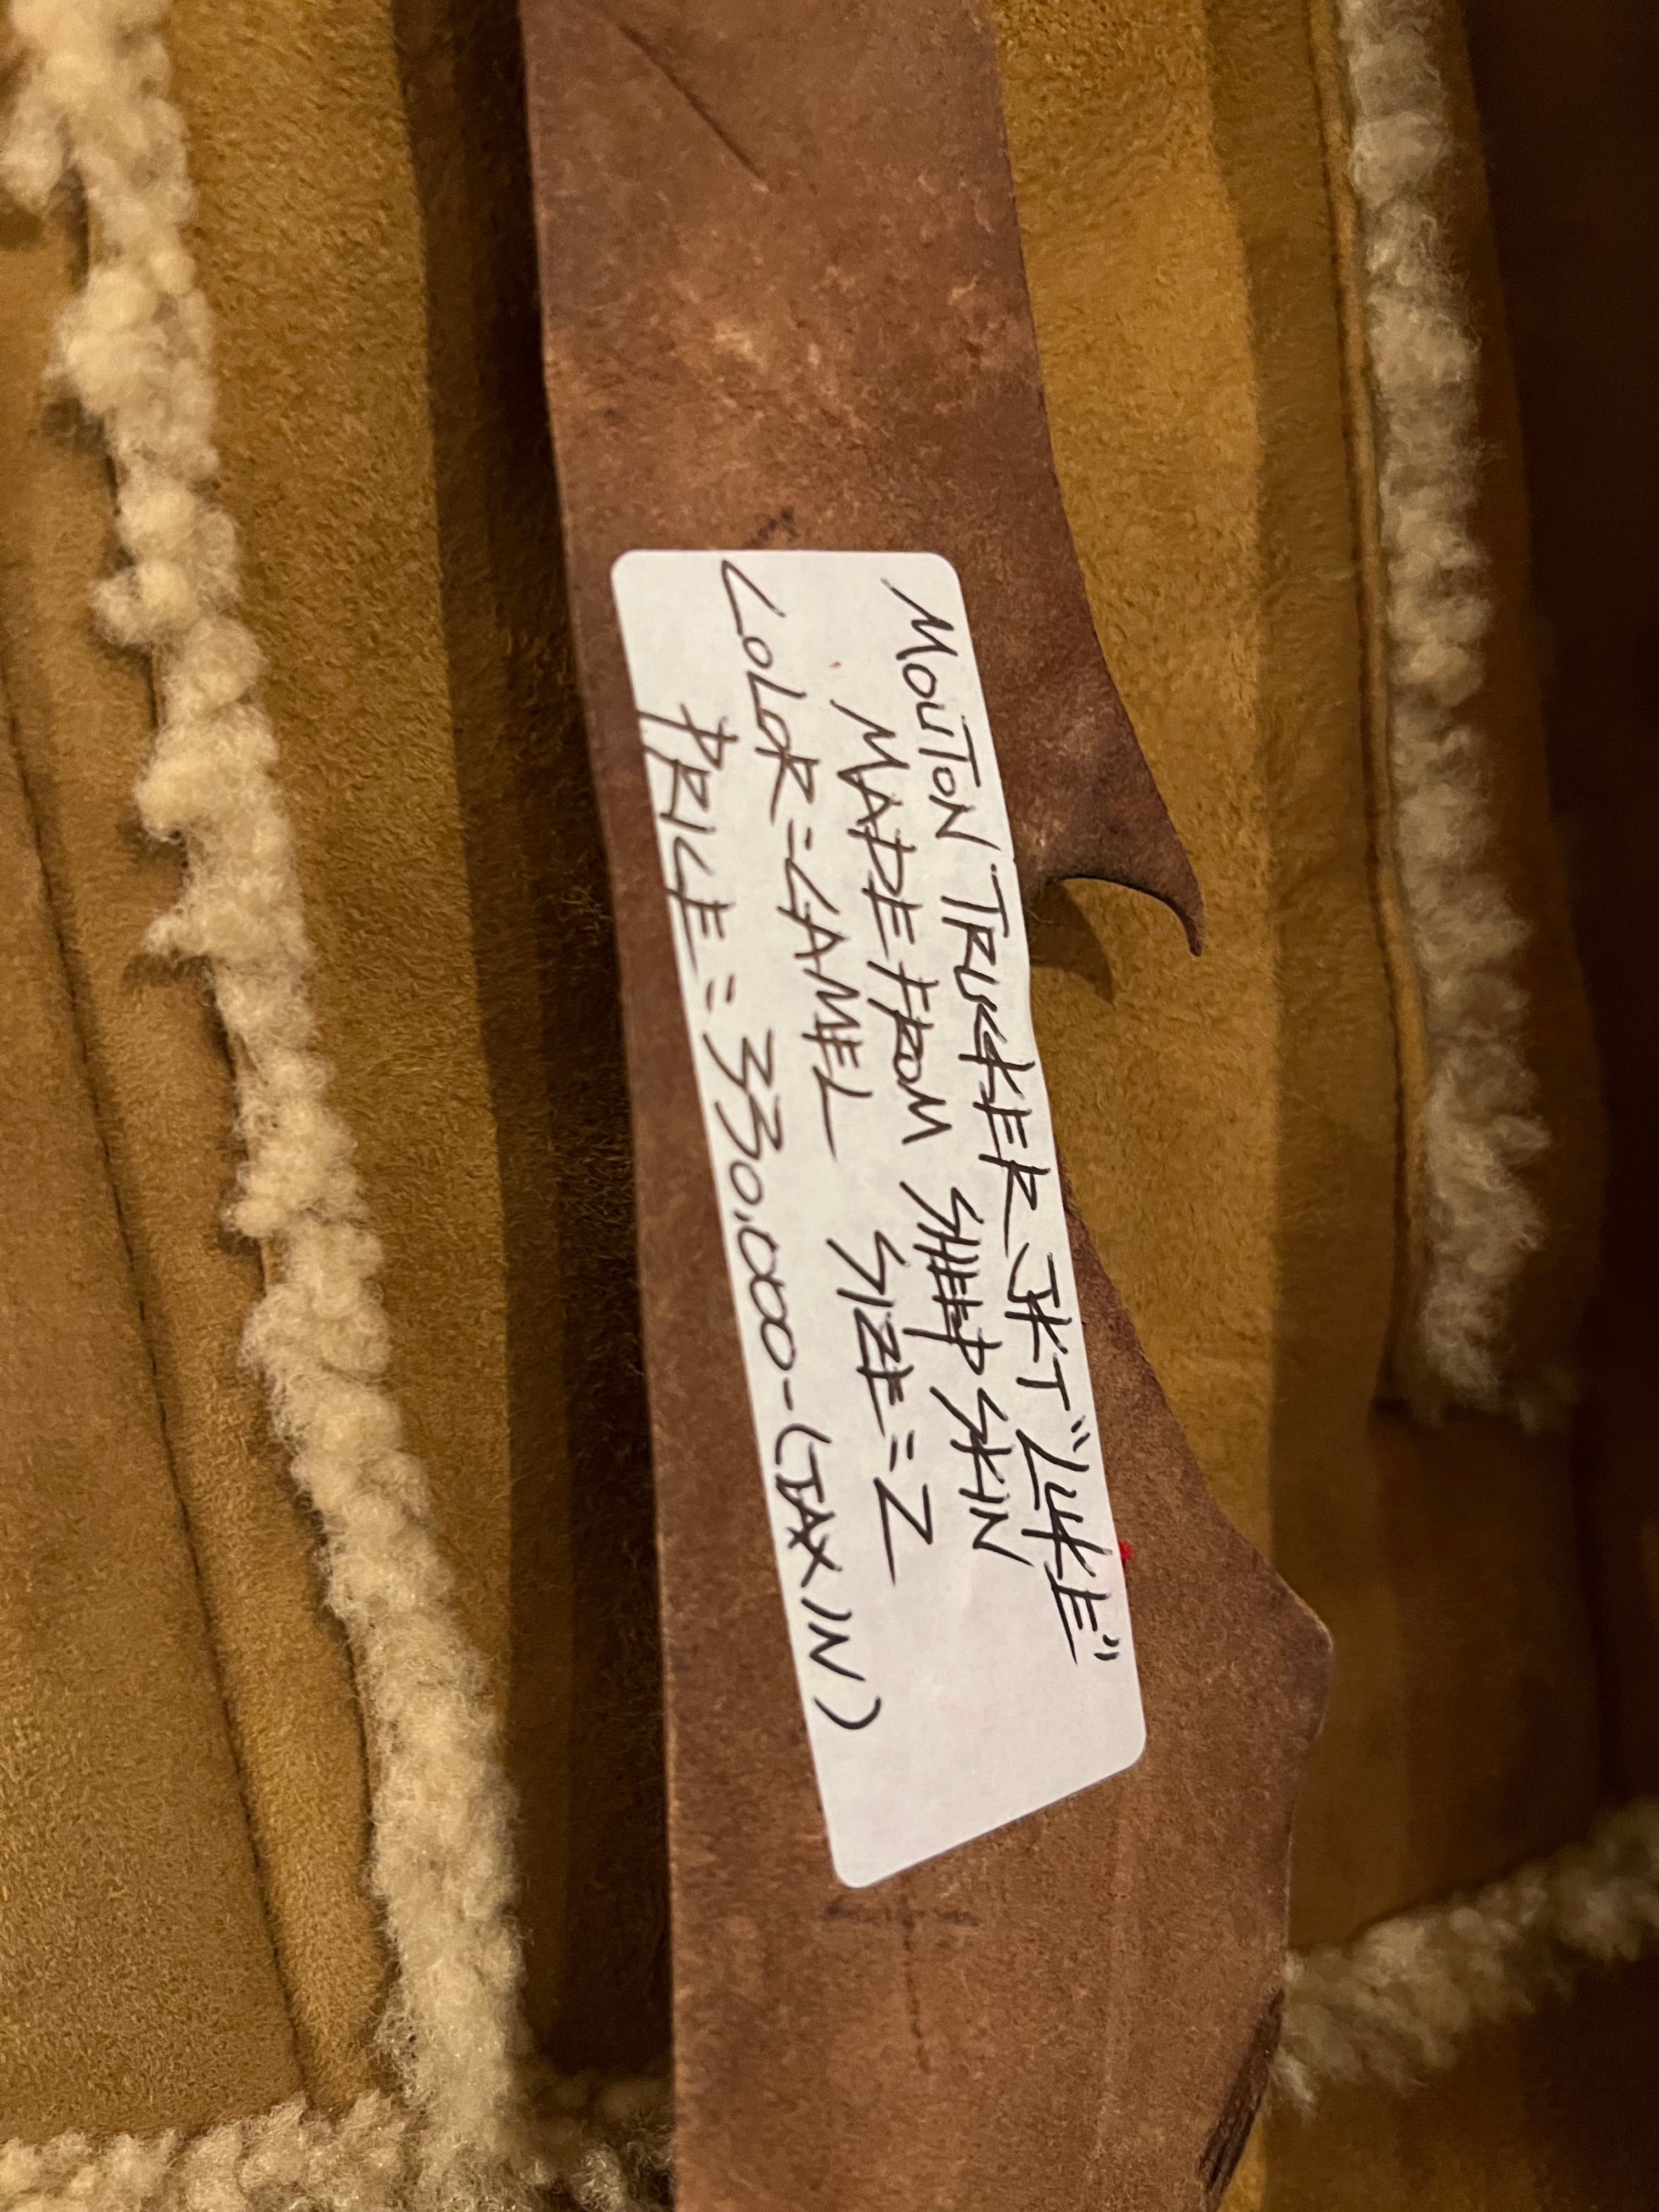 MOUTON TRUCKER JKT "LUKE"
MADE FROM SHEEP SKIN
COLOR=CAMEL SIZE=2
PRICE=330,000-(TAX IN)